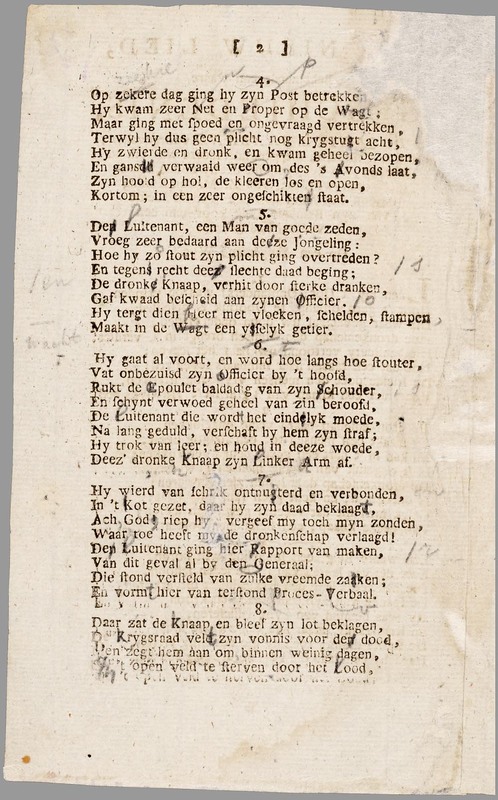 [ 2 ]
4.
Op zekere dag ging hy zyn Post betrekken
Hy kwam zeer Net en Proper op de Wagt;
Maar ging met ſpoed en ongevraagd vertrekken,
Terwyl hy dus geen plicht nog krygstugt acht,
Hy zwierde en dronk, en kwam geheel bezopen,
En gansch verwaaid weer om des 's Avonds laat,
Zyn hoofd op hol, de kleeren los en open,
Kortom; in een zeer ongeſchikten ſtaat.
5.
Den Luitenant, een Man van goede zeden,
Vroeg zeer bedaard aan deeze Jongeling:
Hoe hy zo ſtout zyn plicht ging overtreden?
En tegens recht deez' ſlechte daad beging;
De dronke Knaap, verhit door ſterke dranken,
Gaf kwaad beſcheid aan zynen Officier.
Hy tergt dien Heer met vloeken, ſchelden, ſtampen,
Maakt in de Wagt een yſſelyk getier.
6.
Hy gaat al voort, en word hoe langs hoe ſtouter,
Vat onbezuisd zyn Officier by 't hoofd,
Rukt de Epoulet baldadig van zyn Schouder,
En ſchynt verwoed geheel van zin beroofd,
De Luitenant die word het eindelyk moede,
Na lang geduld, verſchaft hy hem zyn ſtraf;
Hy trok van leer; en houd in deeze woede,
Deez' dronke Knaap zyn Linker Arm af.
7.
Hy wierd van ſchrik ontnugterd en verbonden,
In 't Kot gezet, daar hy zyn daad beklaagt,
Ach God! riep hy vergeef my toch myn zonden,
Waar toe heeft my de dronkenſchap verlaagd!
Den Luitenant ging hier Rapport van maken,
Van dit geval al by den Generaal;
Die ſtond verſteld van zulke vreemde zaaken;
En vormt hier van terſtond Proces-Verbaal.
8.
Daar zat de Knaap en bleef zyn lot beklagen,
Krygsraad veld zyn vonnis voor den dood,
Men zegt hem aan om binnen weinig dagen,
't open veld te ſterven door het Lood,